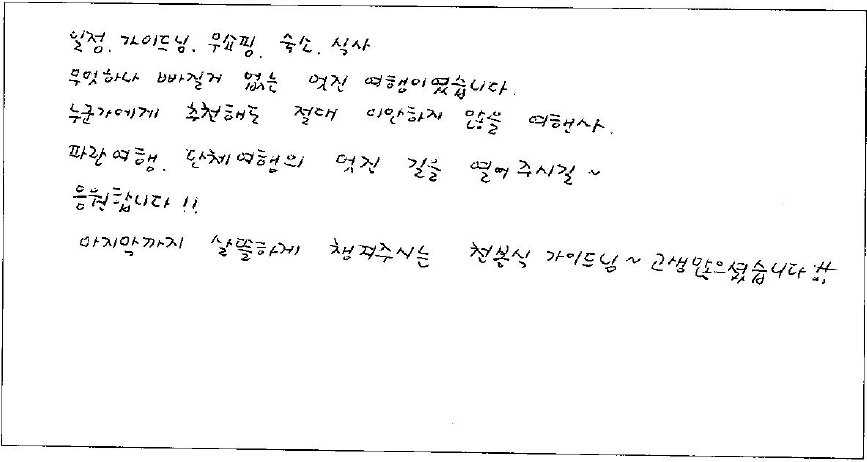 일정, 가이드님, 무쇼핑, 숙소, 식사
무엇하나 빠질거 없는 멋진 여행이였습니다.
누군가에게 추천해도 절대 미안하지 않을 여행사.
파란여행, 단체여행의 멋진 길을 열어주시길~
응원합니다!!
마지막까지 살뜰하게 챙겨주시는 천본식 가이드님~ 고생많으셨습니다!!